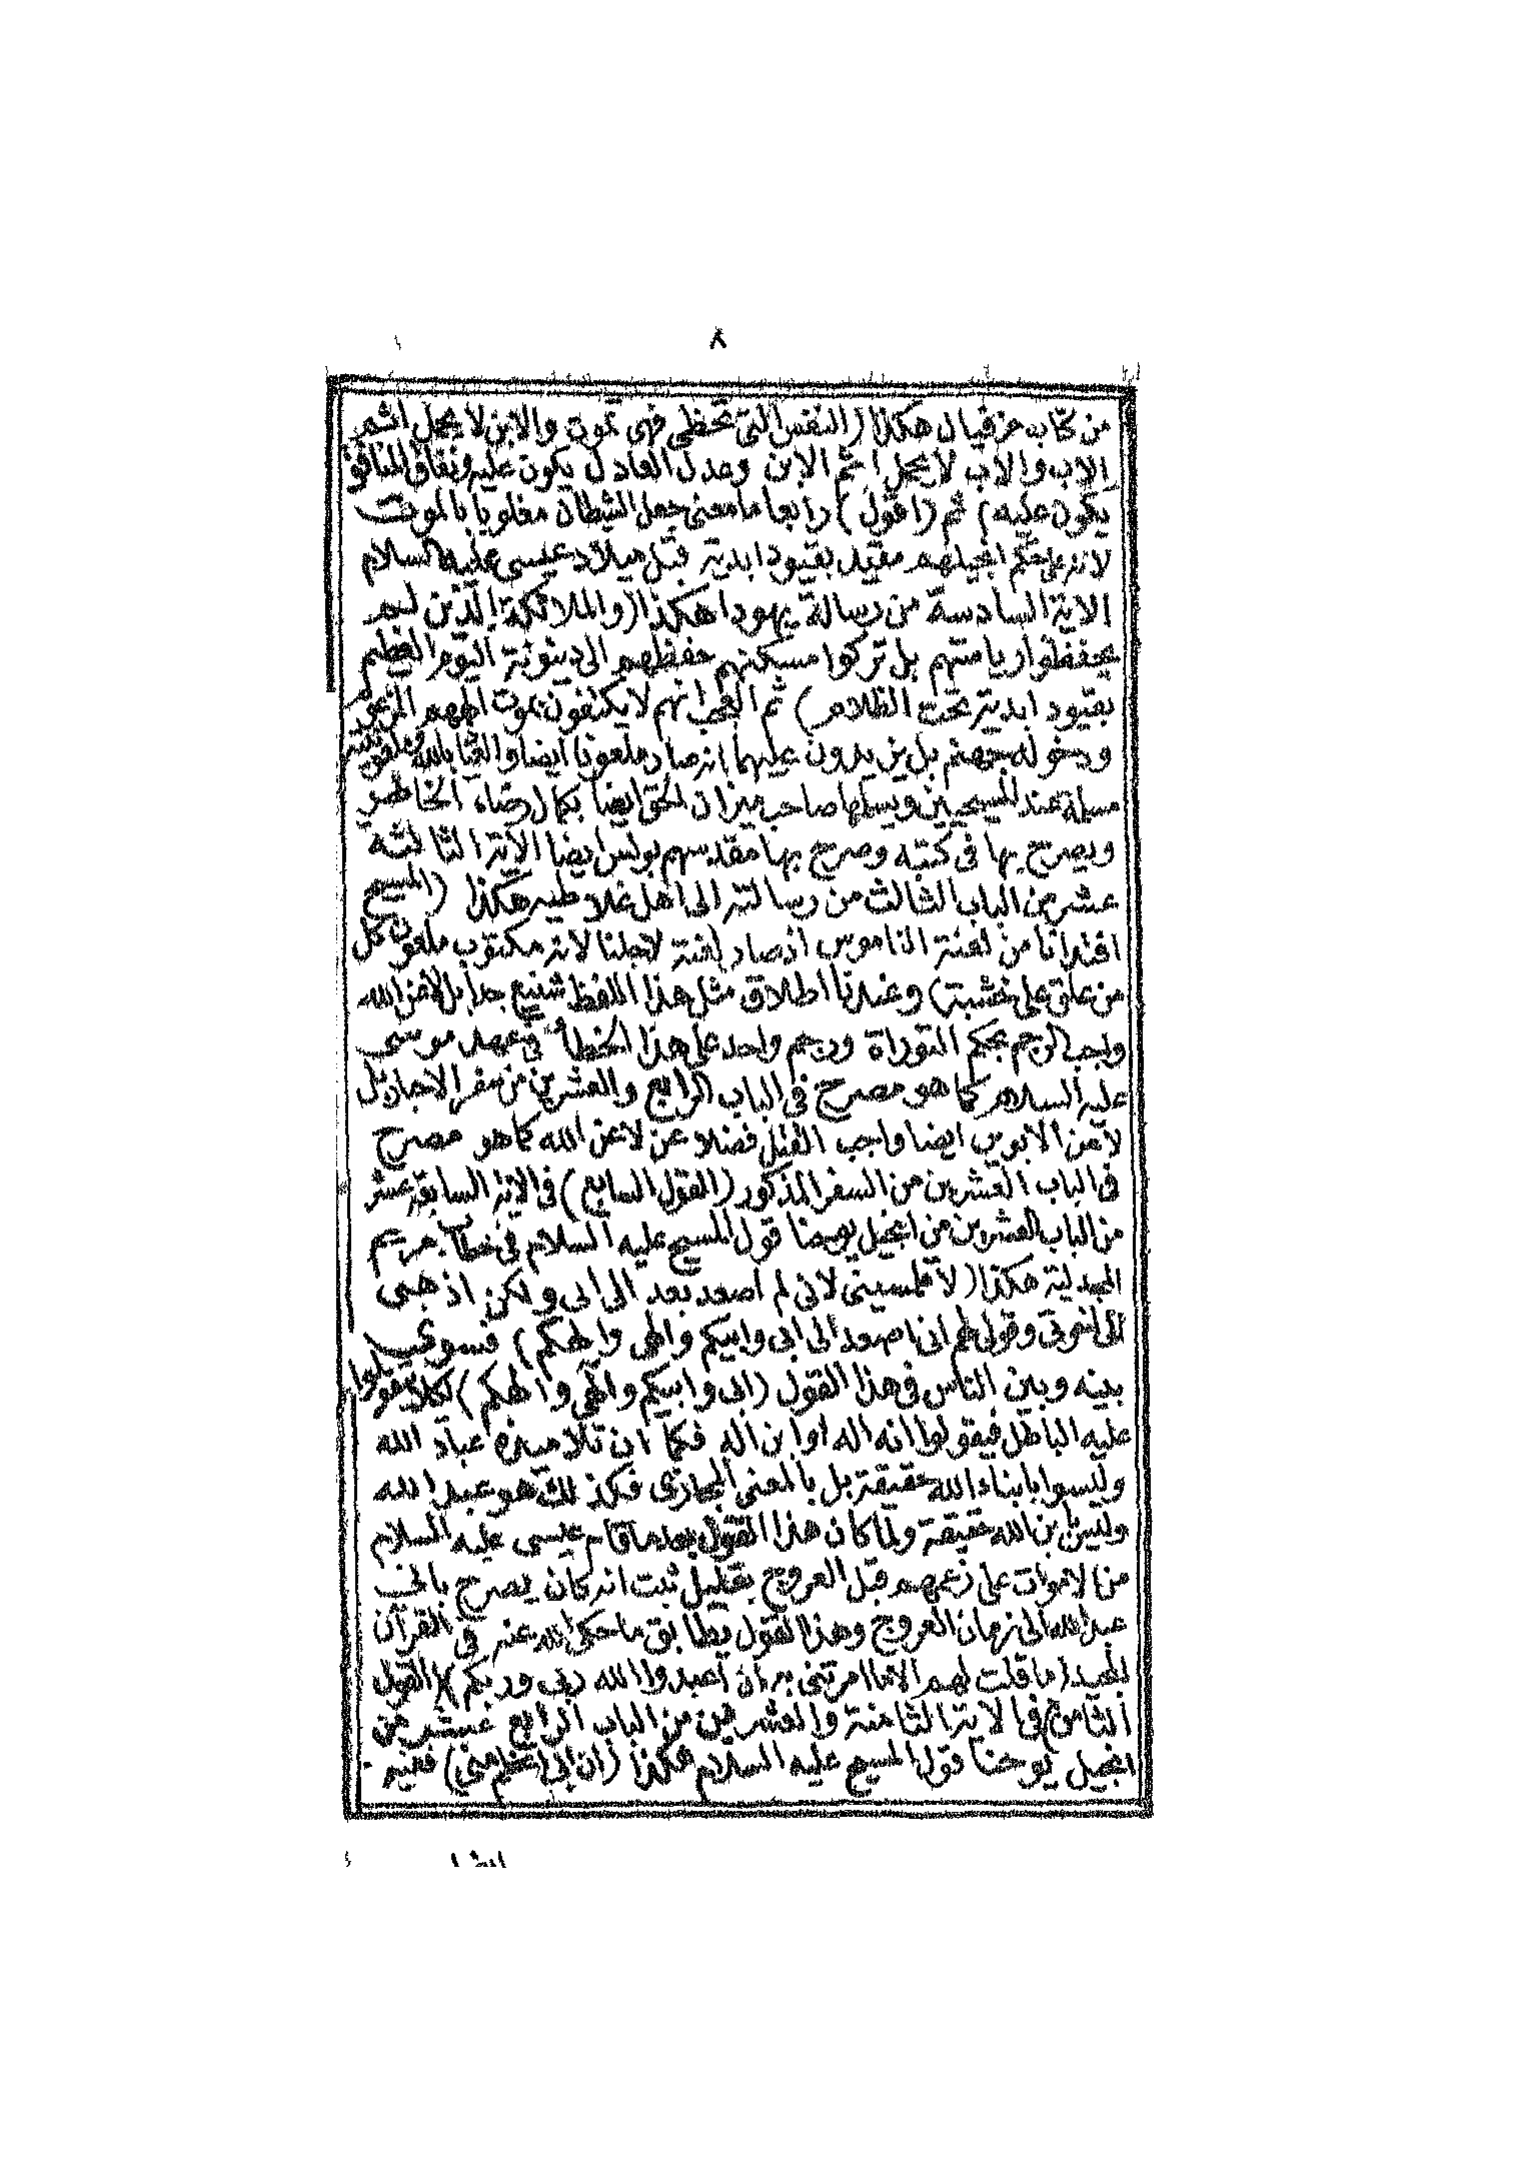 ٨
من كتاب حزقيال هكذا (النفس التى تخطى فهى تموت والابن لا يحمل اثم
الاب والاب لا يحمل اثم الابن وعدل العادل يكون عليه ونفاق المنافق
يكون عليه) ثم (اقول) رابعا ما معنى جعل الشيطان مغلوبا بالموت
لانه على حكم انجيلهم مقيد بقيود ابدية قبل ميلاد عيسى عليه السلام
الاية السادسة من رسالة يهودا هكذا (والملائكة الذين لم
يحفظوا رياستهم بل تركوا مسكنهم حفظهم الى دينونة اليوم العظيم
بقيود ابدية تحت الظلام) ثم العجب انهم لا يكتفون بموت الههم المزعوم
ودخوله جهنم بل يزيدون عليهما انه صار ملعونا ايضا والعياذ بالله
مسلمة عند المسيحيين ويسلمها صاحب ميزان الحق ايضا بكمال رضاء الخاطر
ويصرح بها فى كتبه وصرح بها مقدسهم بولس ايضا الاية الثالثة
عشر من الباب الثالث من رسالته الى اهل غلاطيه هكذا (المسيح
افتدانا من لعنة الناموس اذ صار لعنة لاجلنا لانه مكتوب ملعون كل
من علق على خشبة) وعندنا اطلاق مثل هذا اللفظ شنيع جدا بل لاعن الله
واجب الرجم بحكم التوراة ورجم واحد على هذا الخطأ فى عهد موسى
عليه السلام كما هو مصرح فى الباب الرابع والعشرين من سفر الاحبار بل
لاعن الابوين ايضا واجب القتل فضلا عن لاعن الله كما هو مصرح
فى الباب العشرين من السفر المذكور (القول السابع) فى الاية السابعة عشر
من الباب العشرين من انجيل يوحنا قول المسيح عليه السلام فى خطاب مريم
المجدلية هكذا (لا تلمسينى لانى لم اصعد بعد الى ابى ولكن اذهبى
الى اخوتى وقولى لهم انى اصعد الى ابى وابيكم والهى والهكم) فسوى
بينه وبين الناس فى هذا القول (ابى وابيكم والهى والهكم) لكيلا يتقولوا
عليه الباطل فيقولوا انه اله او ابن اله فكما ان تلاميذه عباد الله
وليسوا بابناء الله حقيقة بل بالمعنى المجازى فكذلك هو عبد الله
وليس بابن الله حقيقة ولما كان هذا القول بعد ما قام عيسى عليه السلام
من الاموات على زعمهم قبل العروج بقليل ثبت انه كان يصرح بانى
عبد الله الى زمان العروج وهذا القول يطابق ما حكى الله عنه فى القرآن
المجيد (ما قلت لهم الا ما امرتنى به ان اعبدوا الله ربى وربكم) (القول
الثامن) فى الاية الثامنة والعشرين من الباب الرابع عشر من
انجيل يوحنا قول المسيح عليه السلام هكذا (ان ابى اعظم منى) ففيه